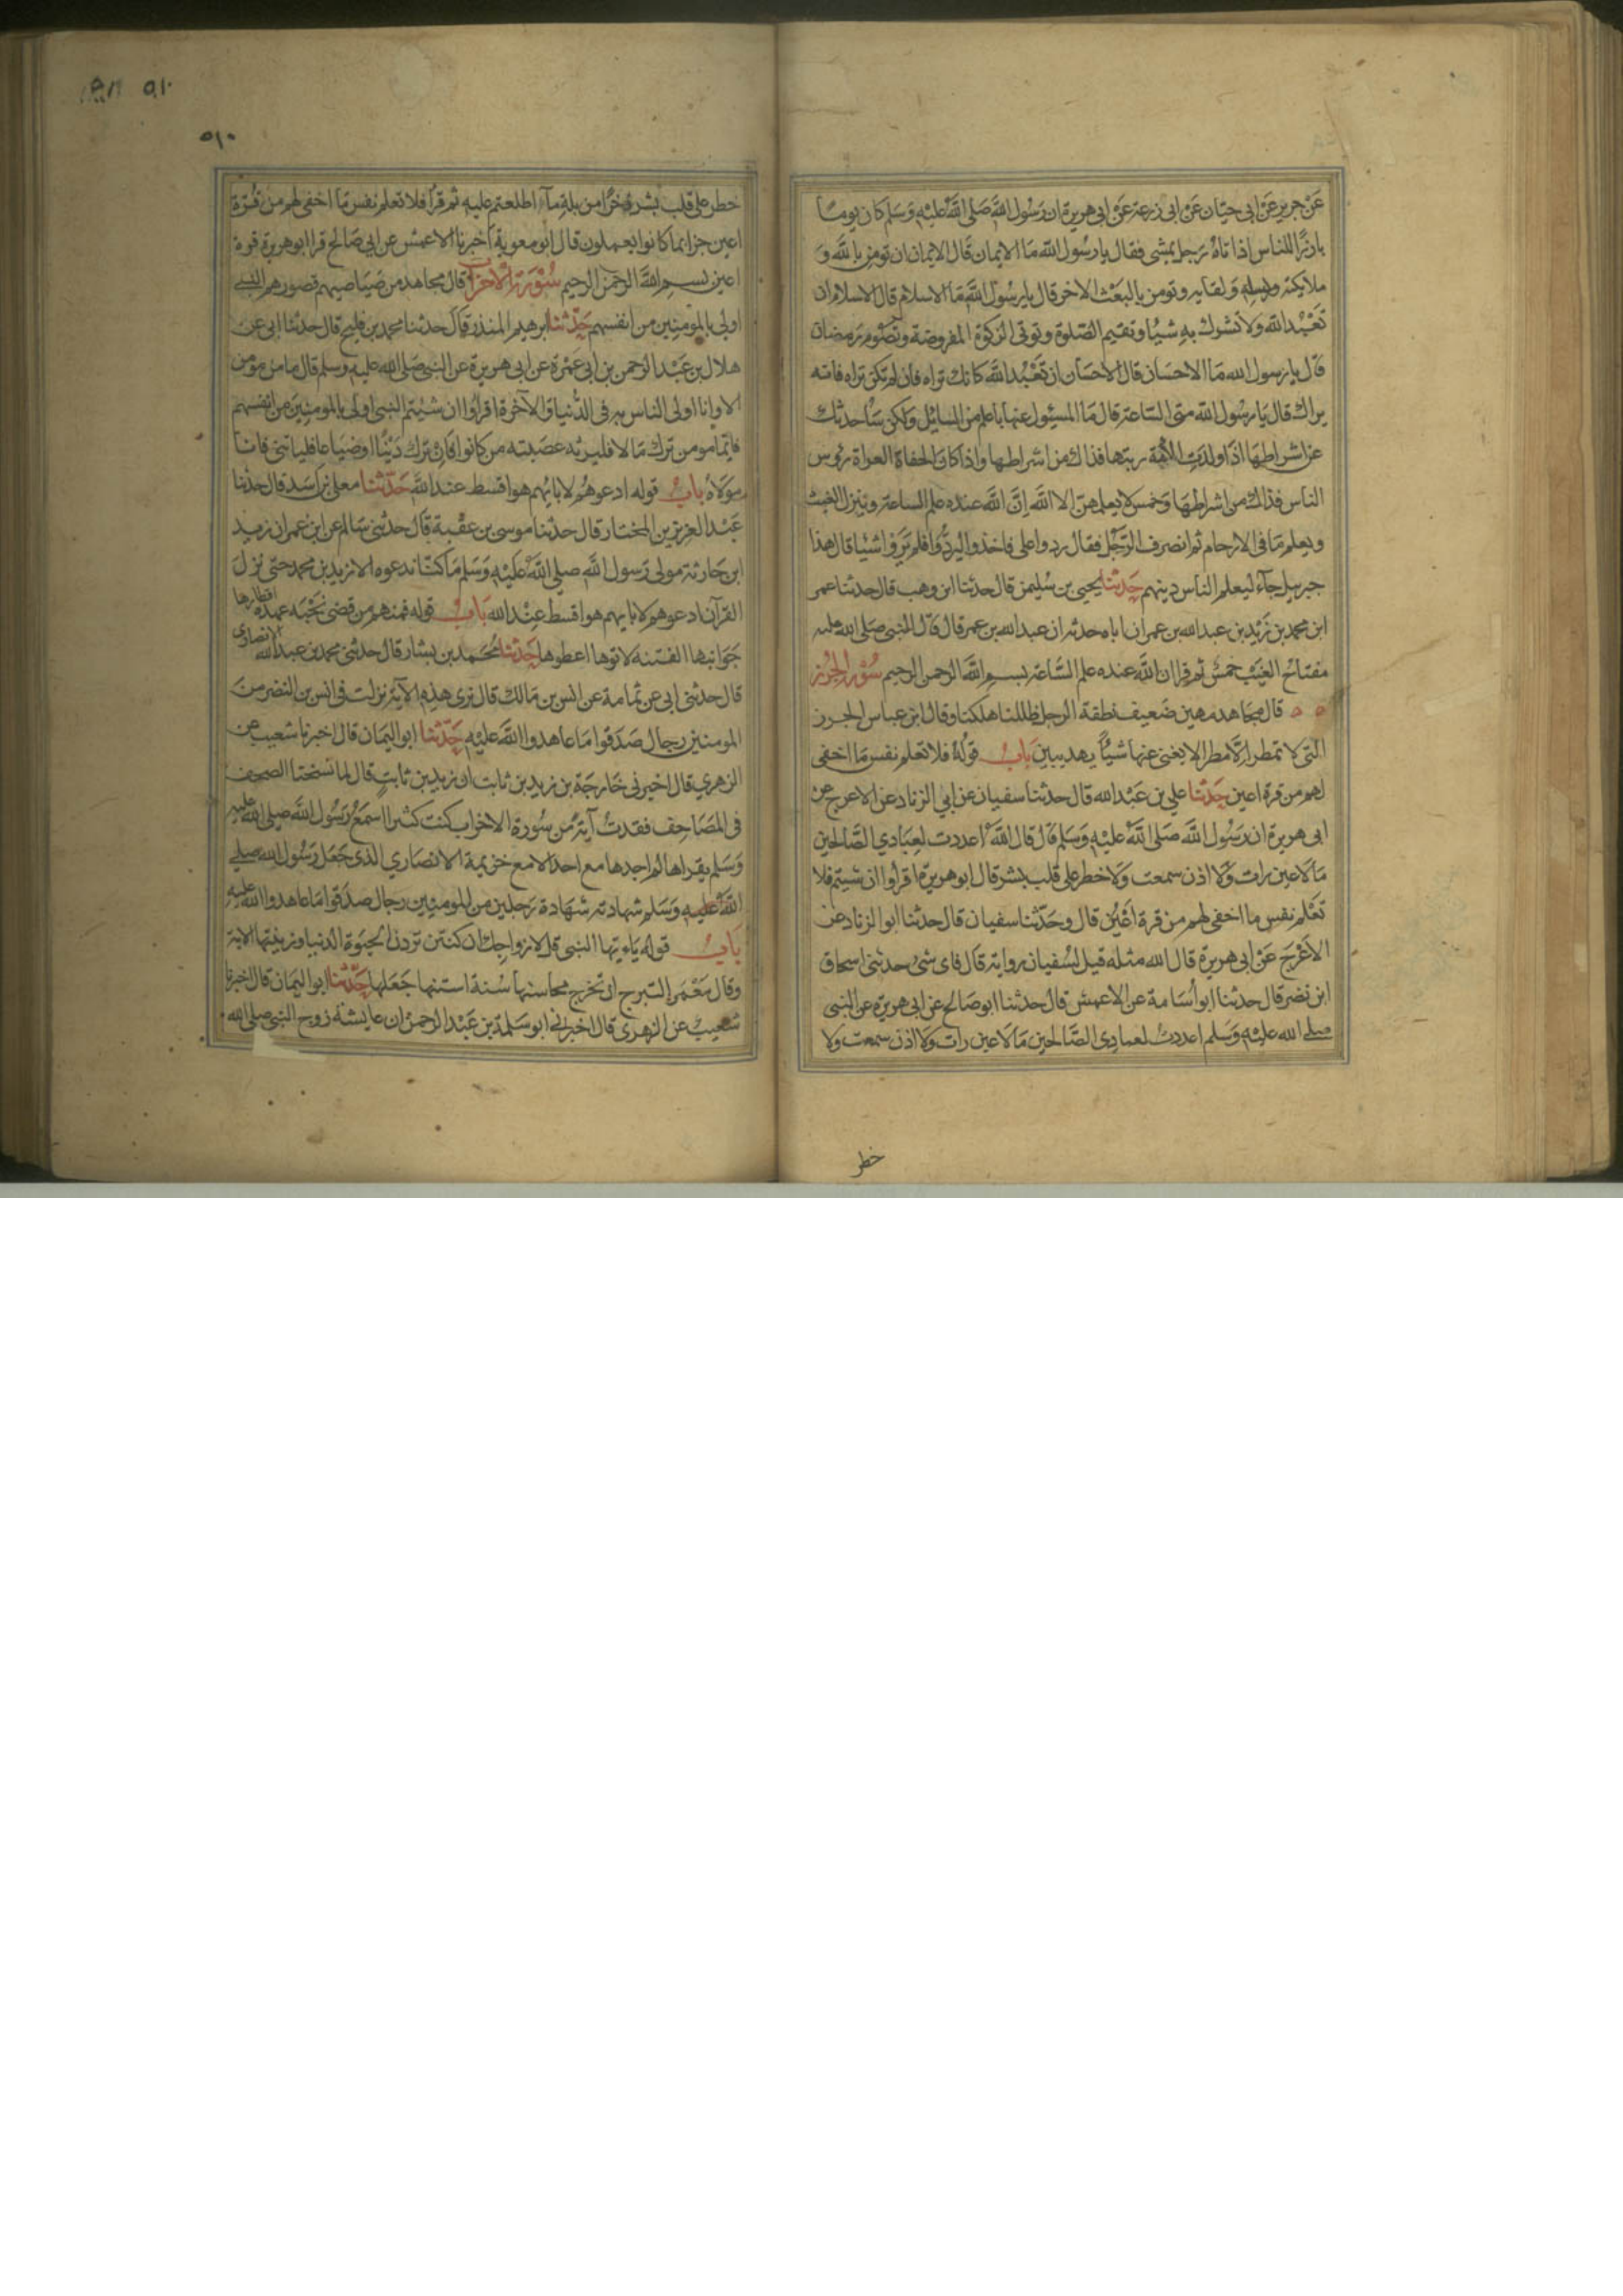 عن جرير عن ابى حيان عن ابى زرعة عن ابى هريرة ان رسول الله صلى الله عليه وسلم كان يوما
بارزا للناس اذا تاه رجل يمشى فقال يا رسول الله ما الايمان قال الايمان ان تومن بالله و
ملايكته ورسله ولقايه وتومن بالبعث الاخر قال يا رسول الله ما الاسلام قال الاسلام ان
تعبد الله ولا تشرك به شيئا وتقيم الصلوة وتوتى الزكوة المفروضة وتصوم رمضان
قال يا رسول الله ما الاحسان قال الاحسان ان تعبد الله كانك تراه فان لم تكن تراه فانه
يراك قال يا رسول الله متى الساعة قال ما المسئول عنها باعلم من السايل ولكن ساحدثك
عن اشراطها اذا ولدت الامة ربتها فذاك من اشراطها واذا كان الحفاة العراة روس
الناس فذاك من اشراطها وخمس لا يعلمهن الا الله ان الله عنده علم الساعة وينزل الغيث
ويعلم ما فى الارحام ثم انصرف الرجل فقال ردوا على فاخذوا ليردوا فلم يروا شيئا قال هذا
جبريل جآء ليعلم الناس دينهم حدثنا يحيى بن سليمن قال حدثنا ابن وهب قال حدثنا عمر
ابن محمد بن زيد بن عبد الله بن عمر ان اباه حدثه ان عبد الله بن عمر قال قال النبى صلى الله عليه
مفتاح الغيب خمس ثم قرا ان الله عنده علم الساعة بسم الله الرحمن الرحيم سورة الجرز
قال مجاهد مهين ضعيف نطفة الرجل ظللنا هلكنا وقال ابن عباس الجرز
التى لا تمطر الا مطرا لا يغنى عنها شيئا يهد يبين باب قوله فلا تعلم نفس ما اخفى
لهم من قرة اعين حدثنا على بن عبد الله قال حدثنا سفيان عن ابي الزناد عن الاعرج عن
ابى هريرة ان رسول الله صلى الله عليه وسلم قال قال الله اعددت لعبادي الصالحين
ما لا عين رات ولا اذن سمعت ولا خطر على قلب بشر قال ابو هريرة اقراوا ان شيتم فلا
تعلم نفس ما اخفى لهم من قرة اعين قال وحدثنا سفيان قال حدثنا ابو الزناد عن
الاعرج عن ابى هريرة قال الله مثله قيل لسفيان رواية قال فاى شىء حدثنى اسحاق
ابن نضر قال حدثنا ابو اسامة عن الاعمش قال حدثنا ابو صالح عن ابى هريرة عن النبى
صلى الله عليه وسلم اعددت لعبادى الصالحين ما لا عين رات ولا اذن سمعت ولا
خطر
٥١٠
٥١٠
خطر على قلب بشر ذخرا من بله مآ اطلعتم عليه ثم قرا فلا تعلم نفس ما اخفى لهم من قرة
اعين جزا بما كانوا يعملون قال ابو معوية اخبرنا الاعمش عن ابى صالح قرا ابو هريرة قرة
اعين بسم الله الرحمن الرحيم سورة الاحزاب قال مجاهد من صياصيهم قصورهم النبى
اولى بالمومنين من انفسهم حدثنا ابرهيم المنذر قال حدثنا محمد بن فليح قال حدثنا ابى عن
هلال بن عبد الرحمن بن ابى عمرة عن ابى هريرة عن النبى صلى الله عليه وسلم قال ما من مومن
الا وانا اولى الناس به فى الدنيا والآخرة اقراوا ان شيتم النبى اولى بالمومنين من انفسهم
فايما مومن ترك مالا فليرثه عصبته من كانوا فان ترك دينا او ضياعا فلياتنى فانا
مولاه باب قوله ادعوهم لابايهم هو اقسط عند الله حدثنا معلى بن اسد قال حدثنا
عبد العزيز بن المختار قال حدثنا موسى بن عقبة قال حدثنى سالم عن ابن عمر ان زيد
ابن حارثة مولى رسول الله صلى الله عليه وسلم ما كنا ندعوه الا زيد بن محمد حتى نزل
القرآن ادعوهم لابايهم هو اقسط عند الله باب قوله فمنهم من قضى نحبه عهده اقطارها
جوانبها الفتنة لاتوها اعطوها حدثنا محمد بن بشار قال حدثنى محمد بن عبد الله الانصارى
قال حدثنى ابى عن ثمامة عن انس بن مالك قال نرى هذه الآية نزلت فى انس بن النضر من
المومنين رجال صدقوا ما عاهدوا الله عليه حدثنا ابو اليمان قال اخبرنا شعيب عن
الزهري قال اخبرنى خارجة بن زيد بن ثابت ان زيد بن ثابت قال لما نسخنا الصحف
فى المصاحف فقدت آية من سورة الاحزاب كنت كثيرا اسمع رسول الله صلى الله عليه
وسلم يقراها لم اجدها مع احد الا مع خزيمة الانصاري الذى جعل رسول الله صلى
الله عليه وسلم شهادته شهادة رجلين من المومنين رجال صدقوا ما عاهدوا الله عليه
باب قوله يا ايها النبى قل لازواجك ان كنتن تردن الحيوة الدنيا وزينتها الاية
وقال معمر التبرج ان تخرج محاسنها سنة استنها جعلها حدثنا ابو اليمان قال اخبرنا
شعيب عن الزهرى قال اخبرنى ابو سلمة بن عبد الرحمن ان عايشة زوج النبى صلى الله